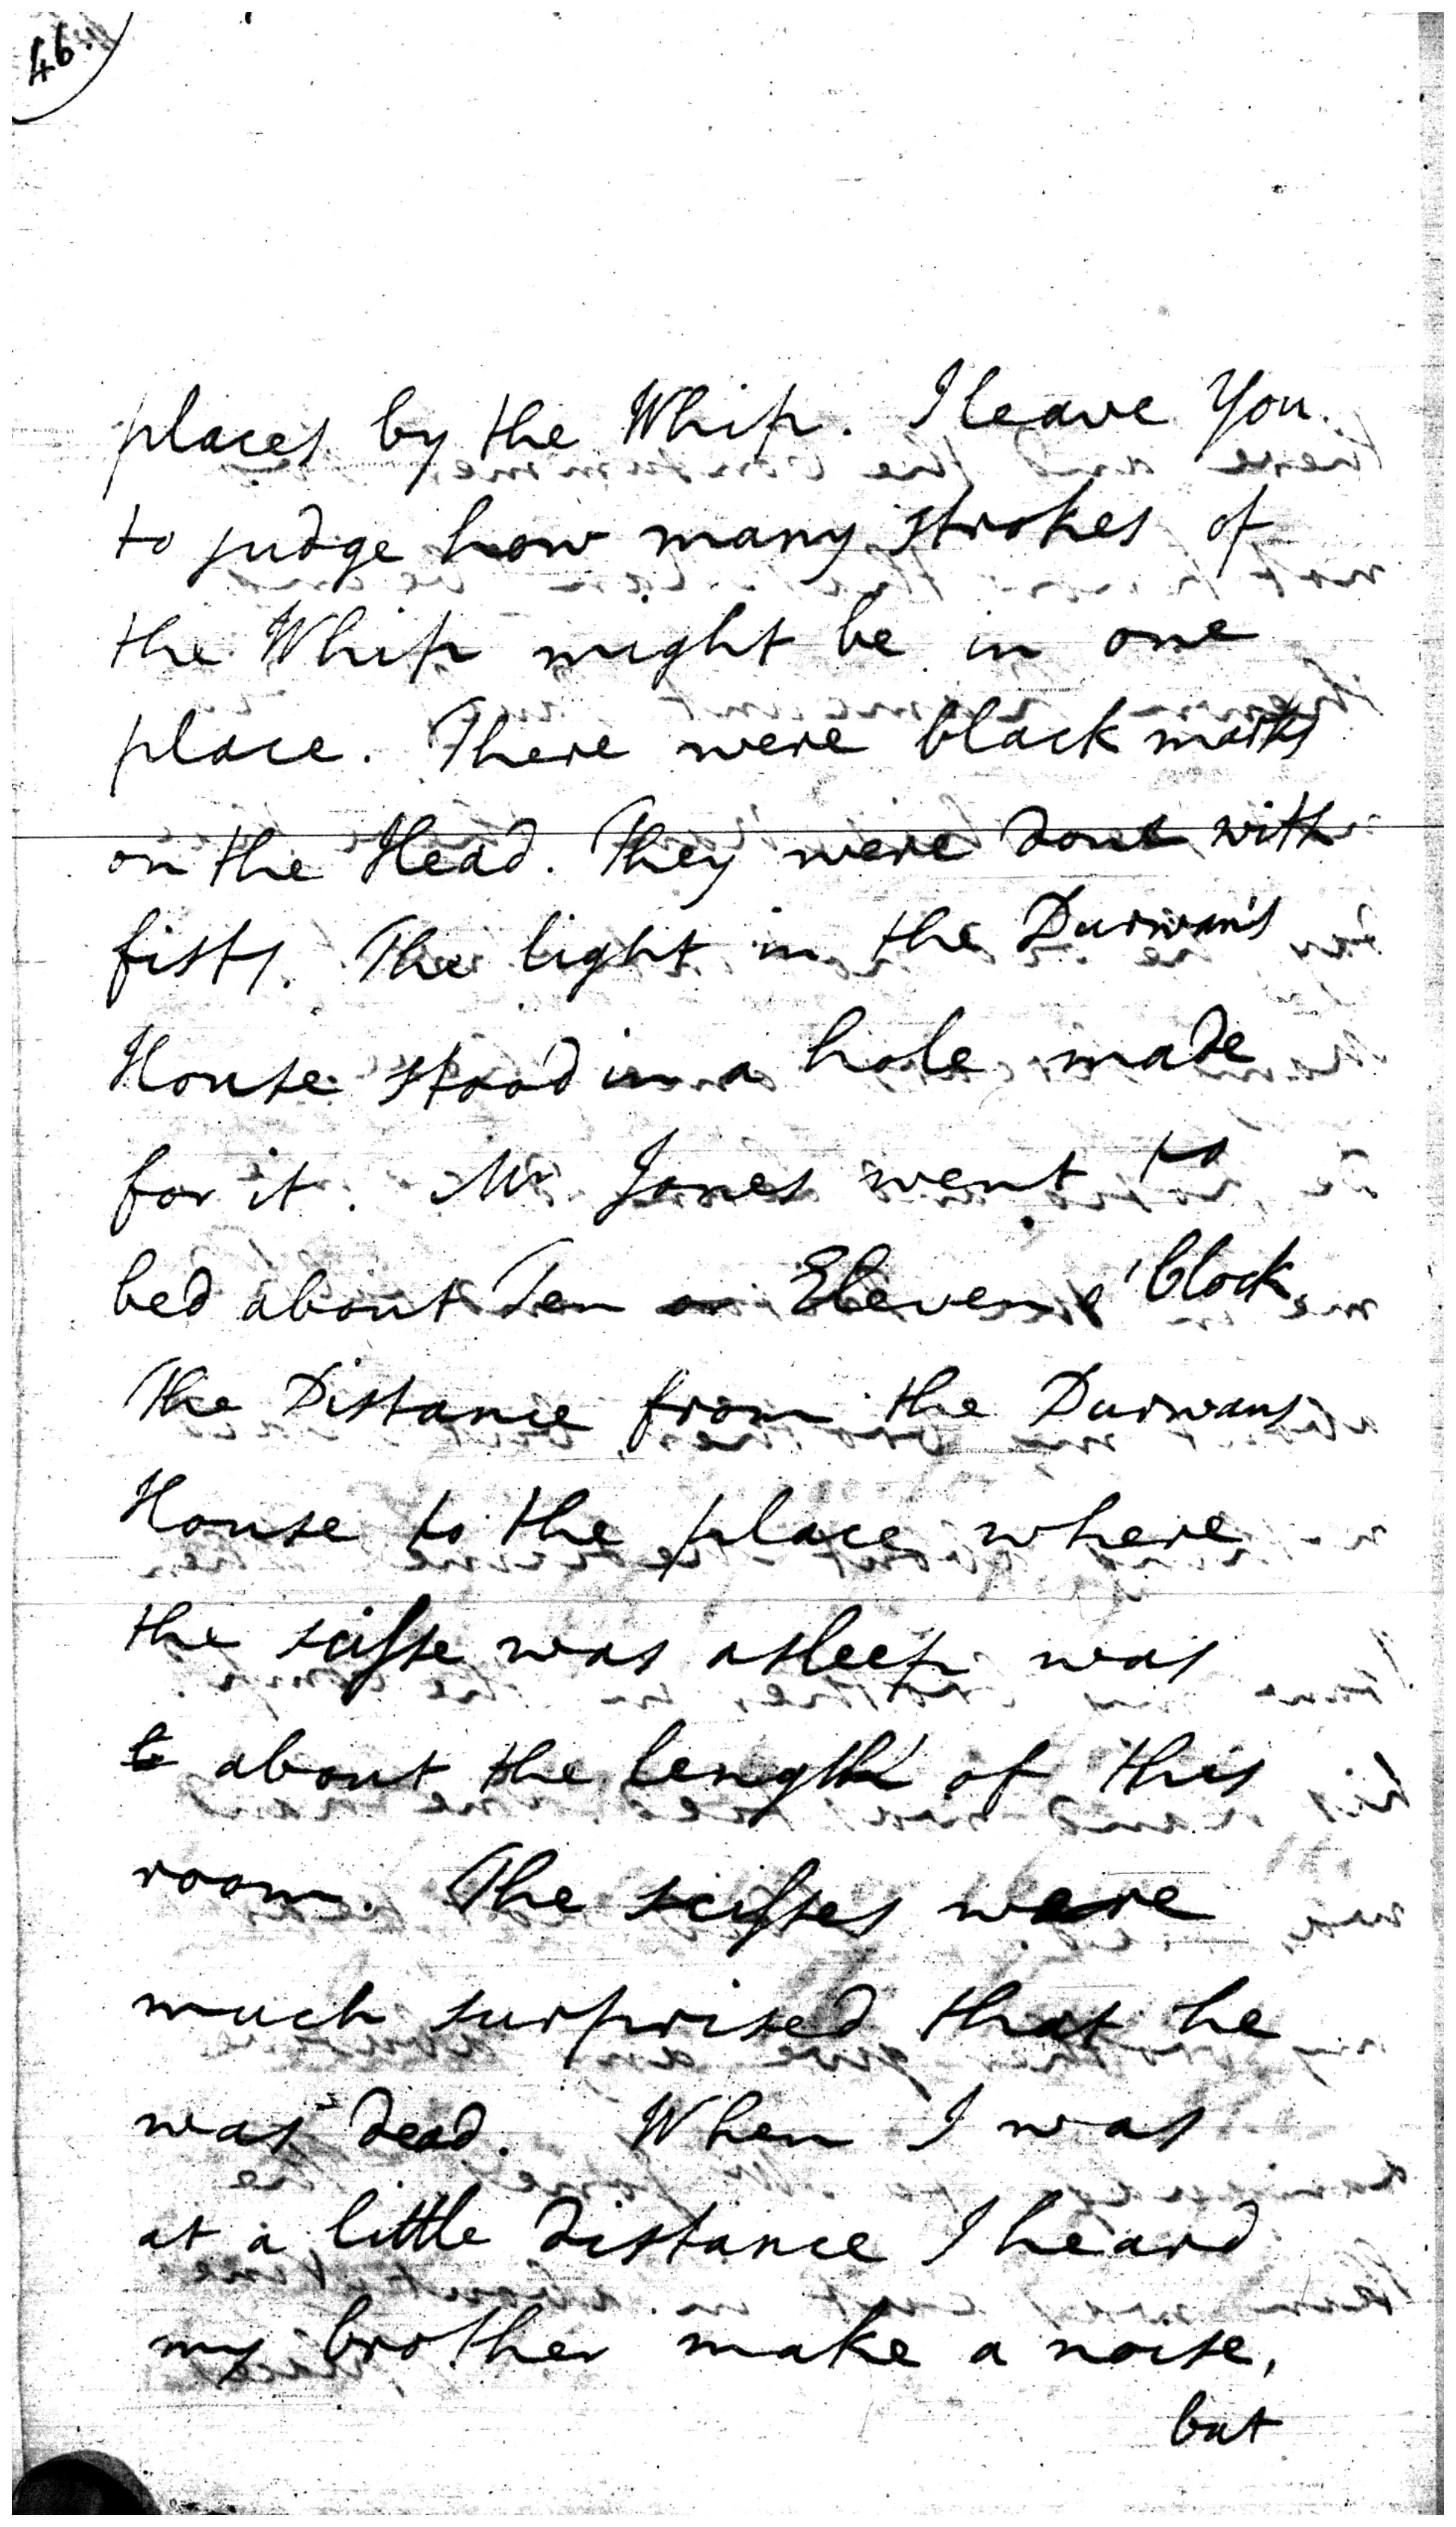 46.
places by the Whip. I leave You
to judge how many strokes of
the Whip might be in one
place. There were black marks
on the Head. They were done with
fists. The light in the Durwan's
House stood in a hole made
for it. Mr Jones went to
bed about Ten or Eleven o'Clock.
The Distance from the Durwans
House to the place where
the scisse was asleep was
about the length of this
room. The scisses were
much surprised that he
was dead. When I was
at a little distance I heard
my brother make a noise,
but